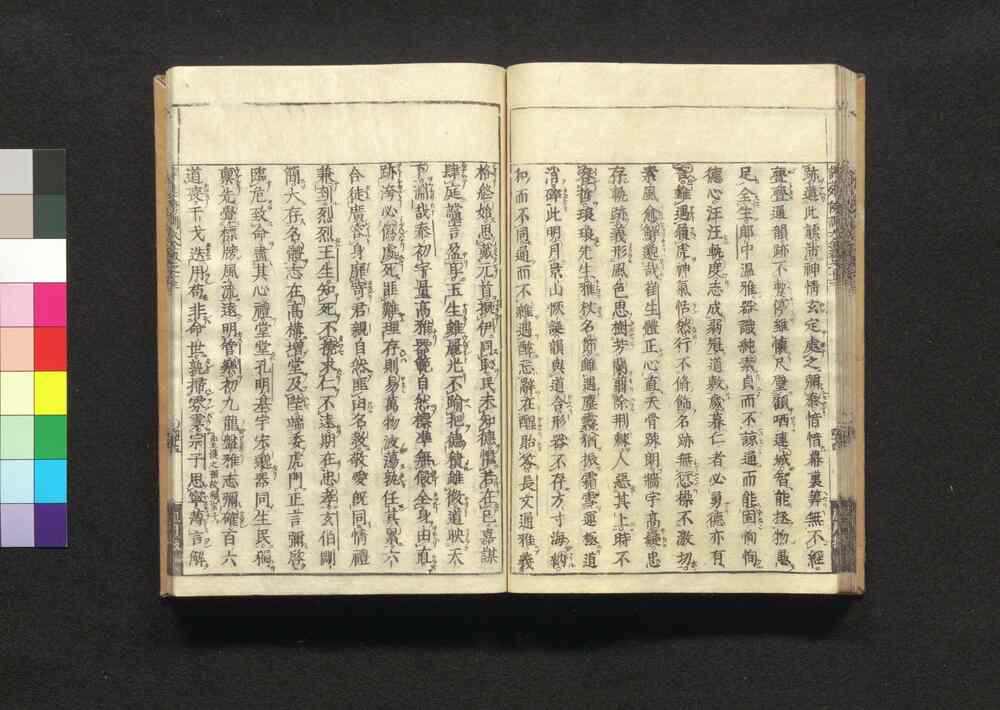 跡遵此顛沛神情玄定處之彌泰愔愔幕裏筭無不經
亹亹通韻跡不暫停雖懷尺璧顧哂連城智能拯物愚
足全生郎中溫雅器識純素貞而不諒通而能固恂恂
德心汪汪軌度志成弱冠道敷歲暮仁者必勇德亦有
言雖遇履虎神氣恬然行不脩飾名跡無愆操不激切
素風愈鮮邈哉崔生體正心直天骨踈朗牆宇高嶷忠
存軌跡義形風色思樹芳蘭翦除荊棘人惡其上時不
容哲琅琅先生雅杖名節雖遇塵霧猶振霜雪運極道
消碎此明月景山恢誕韻與道合形器不存方寸海納
和而不同通而不雜遇醉忘辭在醒貽答長文通雅義
格終始思戴元首擬伊同恥民未知德懼若在己嘉謀
肆庭讜言盈耳玉生雖麗光不踰把德積雖微道映天
下淵哉泰初宇量高雅器範自然標準無假全身由直
跡洿必僞處死匪難理存則易萬物波蕩孰任其累六
合徒廣容身靡寄君親自然匪由名教敬愛既同情禮
兼到烈烈王生知死不撓求仁不遠期在忠孝玄伯剛
簡大存名體志在高構增堂及陛端委虎門正言彌啓
臨危致命盡其心禮堂堂孔明基宇宏邈器同生民獨
稟先覺標牓風流遠明管樂初九龍盤雅志彌確百六
道喪干戈迭用苟非命世孰掃雰雺宗子思寧薄言解